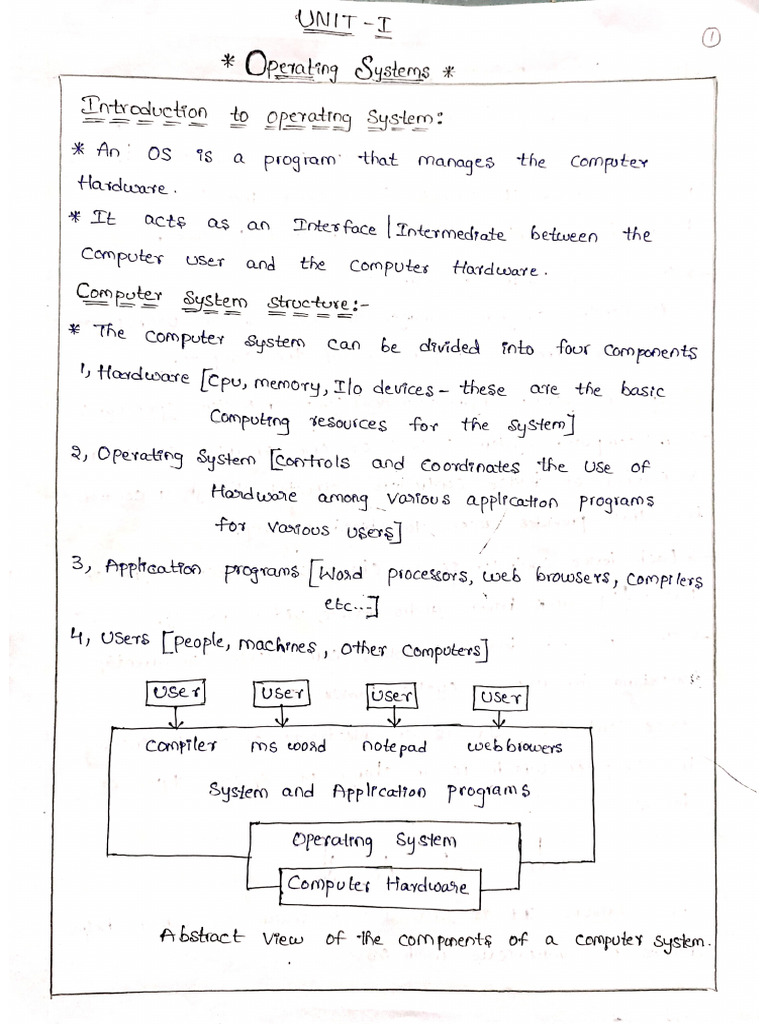 UNIT - I
1
* Operating Systems *
Introduction to operating System:
* An OS is a program that manages the computer
Hardware.
* It acts as an Interface | Intermediate between the
computer user and the computer Hardware.
Computer System structure:-
* The computer system can be divided into four components
1, Hardware [cpu, memory, I/o devices - these are the basic
computing resources for the system]
2, Operating System [controls and coordinates the use of
Hardware among various application programs
for various users]
3, Application programs [Word processors, web browsers, compilers
etc...]
4, Users [people, machines, other computers]
User User User User
compiler ms word notepad web browers
System and Application programs
Operating System
Computer Hardware
Abstract view of the components of a computer system.